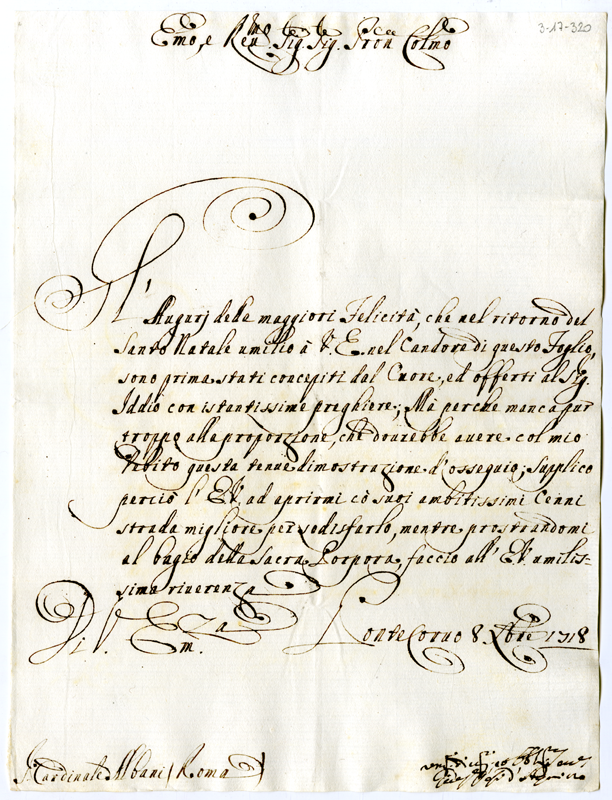 3-17-320
Emo, e Revmo Sig. Sig. Pron Colmo
Gl' Augurj delle maggiori Felicità, che nel ritorno del
Santo Natale umilio à V. E. nel Candore di questo Foglio,
sono prima stati concepiti dal Cuore, ed offerti al Sig.
Iddio con istantissime preghiere; Mà perche manca pur
troppo alla proporzione, che dourebbe auere col mio
Debito questa tenue dimostrazione d'ossequio; supplico
perciò l' E.V. ad aprirmi cò suoi ambitissimi Cenni
strada migliore per sodisfarlo, mentre prostrandomi
al bagio della Sacra Porpora, faccio all' E.V. umilis=
sima riuerenza
Di V. Emza
PonteCoruo 8. Xbre 1718
Cardinale Albani / Roma